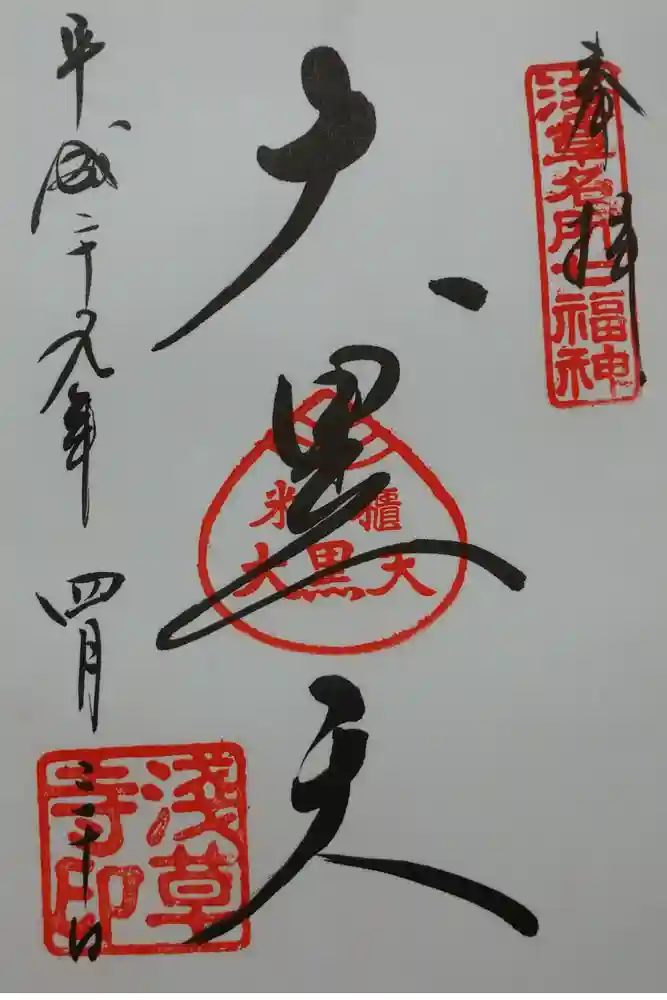 奉拝
浅草名所七福神
大黒天
米櫃
大黒天
平成二十九年四月二十日
浅草
寺印